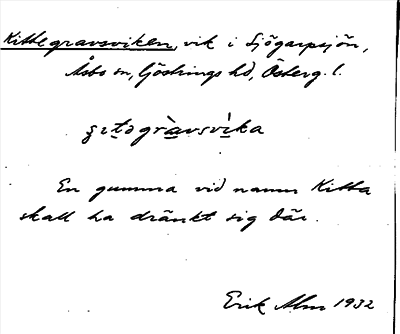 Kittegravsviken, vik i Sjögarpsjön,
Åsbo sn, Göstrings hd, Österg. l.
En gumma vid namn Kitta
skall ha dränkt sig där.
Erik Alm 1932